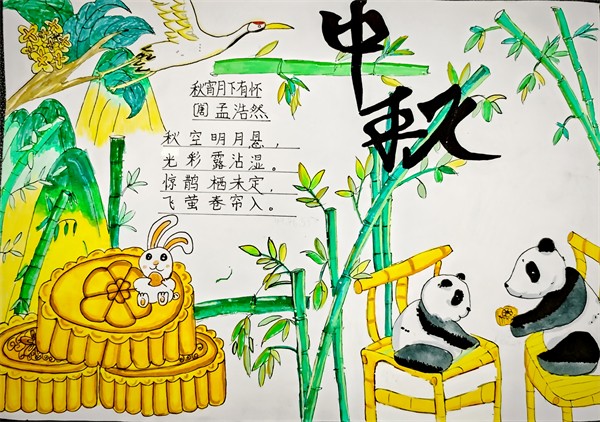 中秋
秋宵月下有怀
孟浩然
秋空明月悬，
光彩露沾湿。
惊鹊栖未定，
飞萤卷帘入。